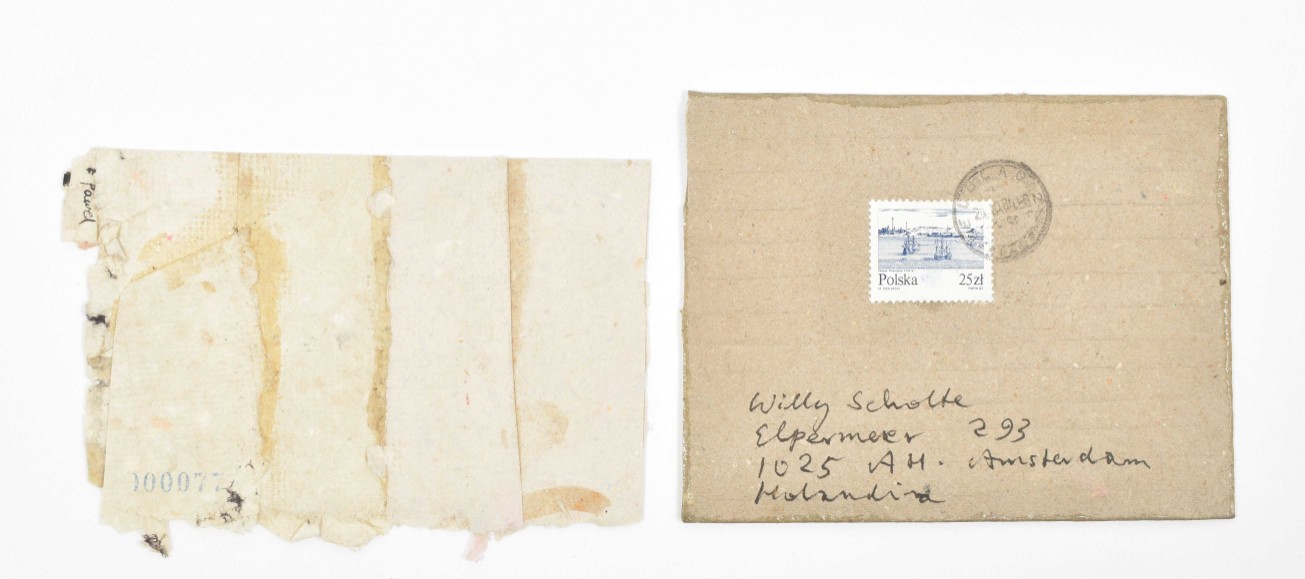 * Pawel
000077
Polska 25zł
Willy Scholte
Elpermeer 293
1025 AH. Amsterdam
Holandia